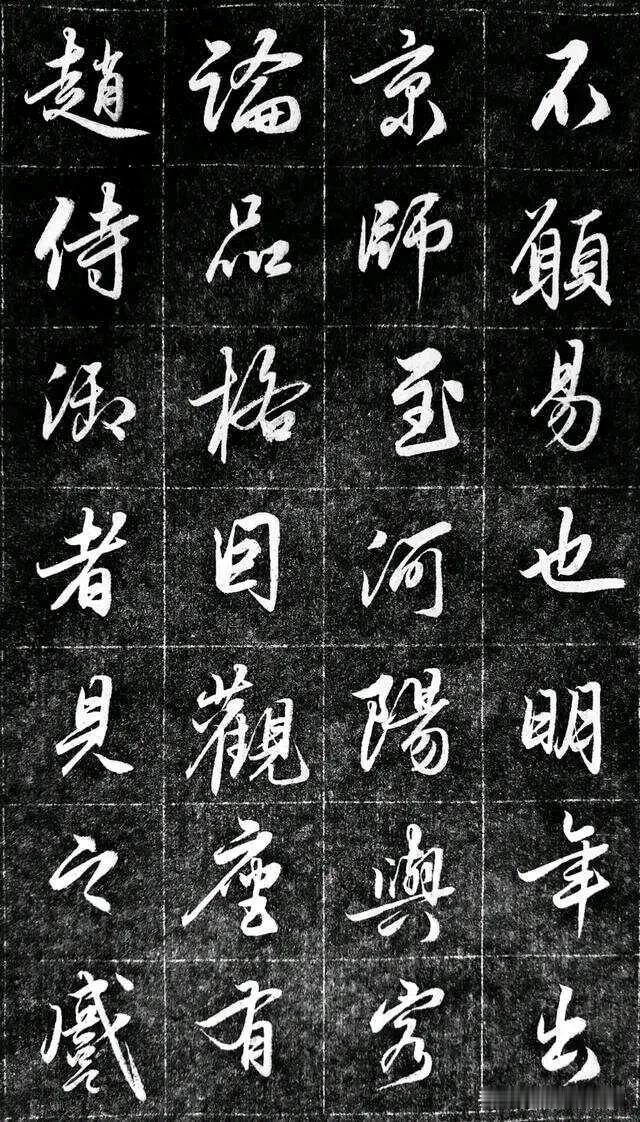 不願易也明年出
京師至河陽與客
論品格因觀座有
趙侍御者見之慼